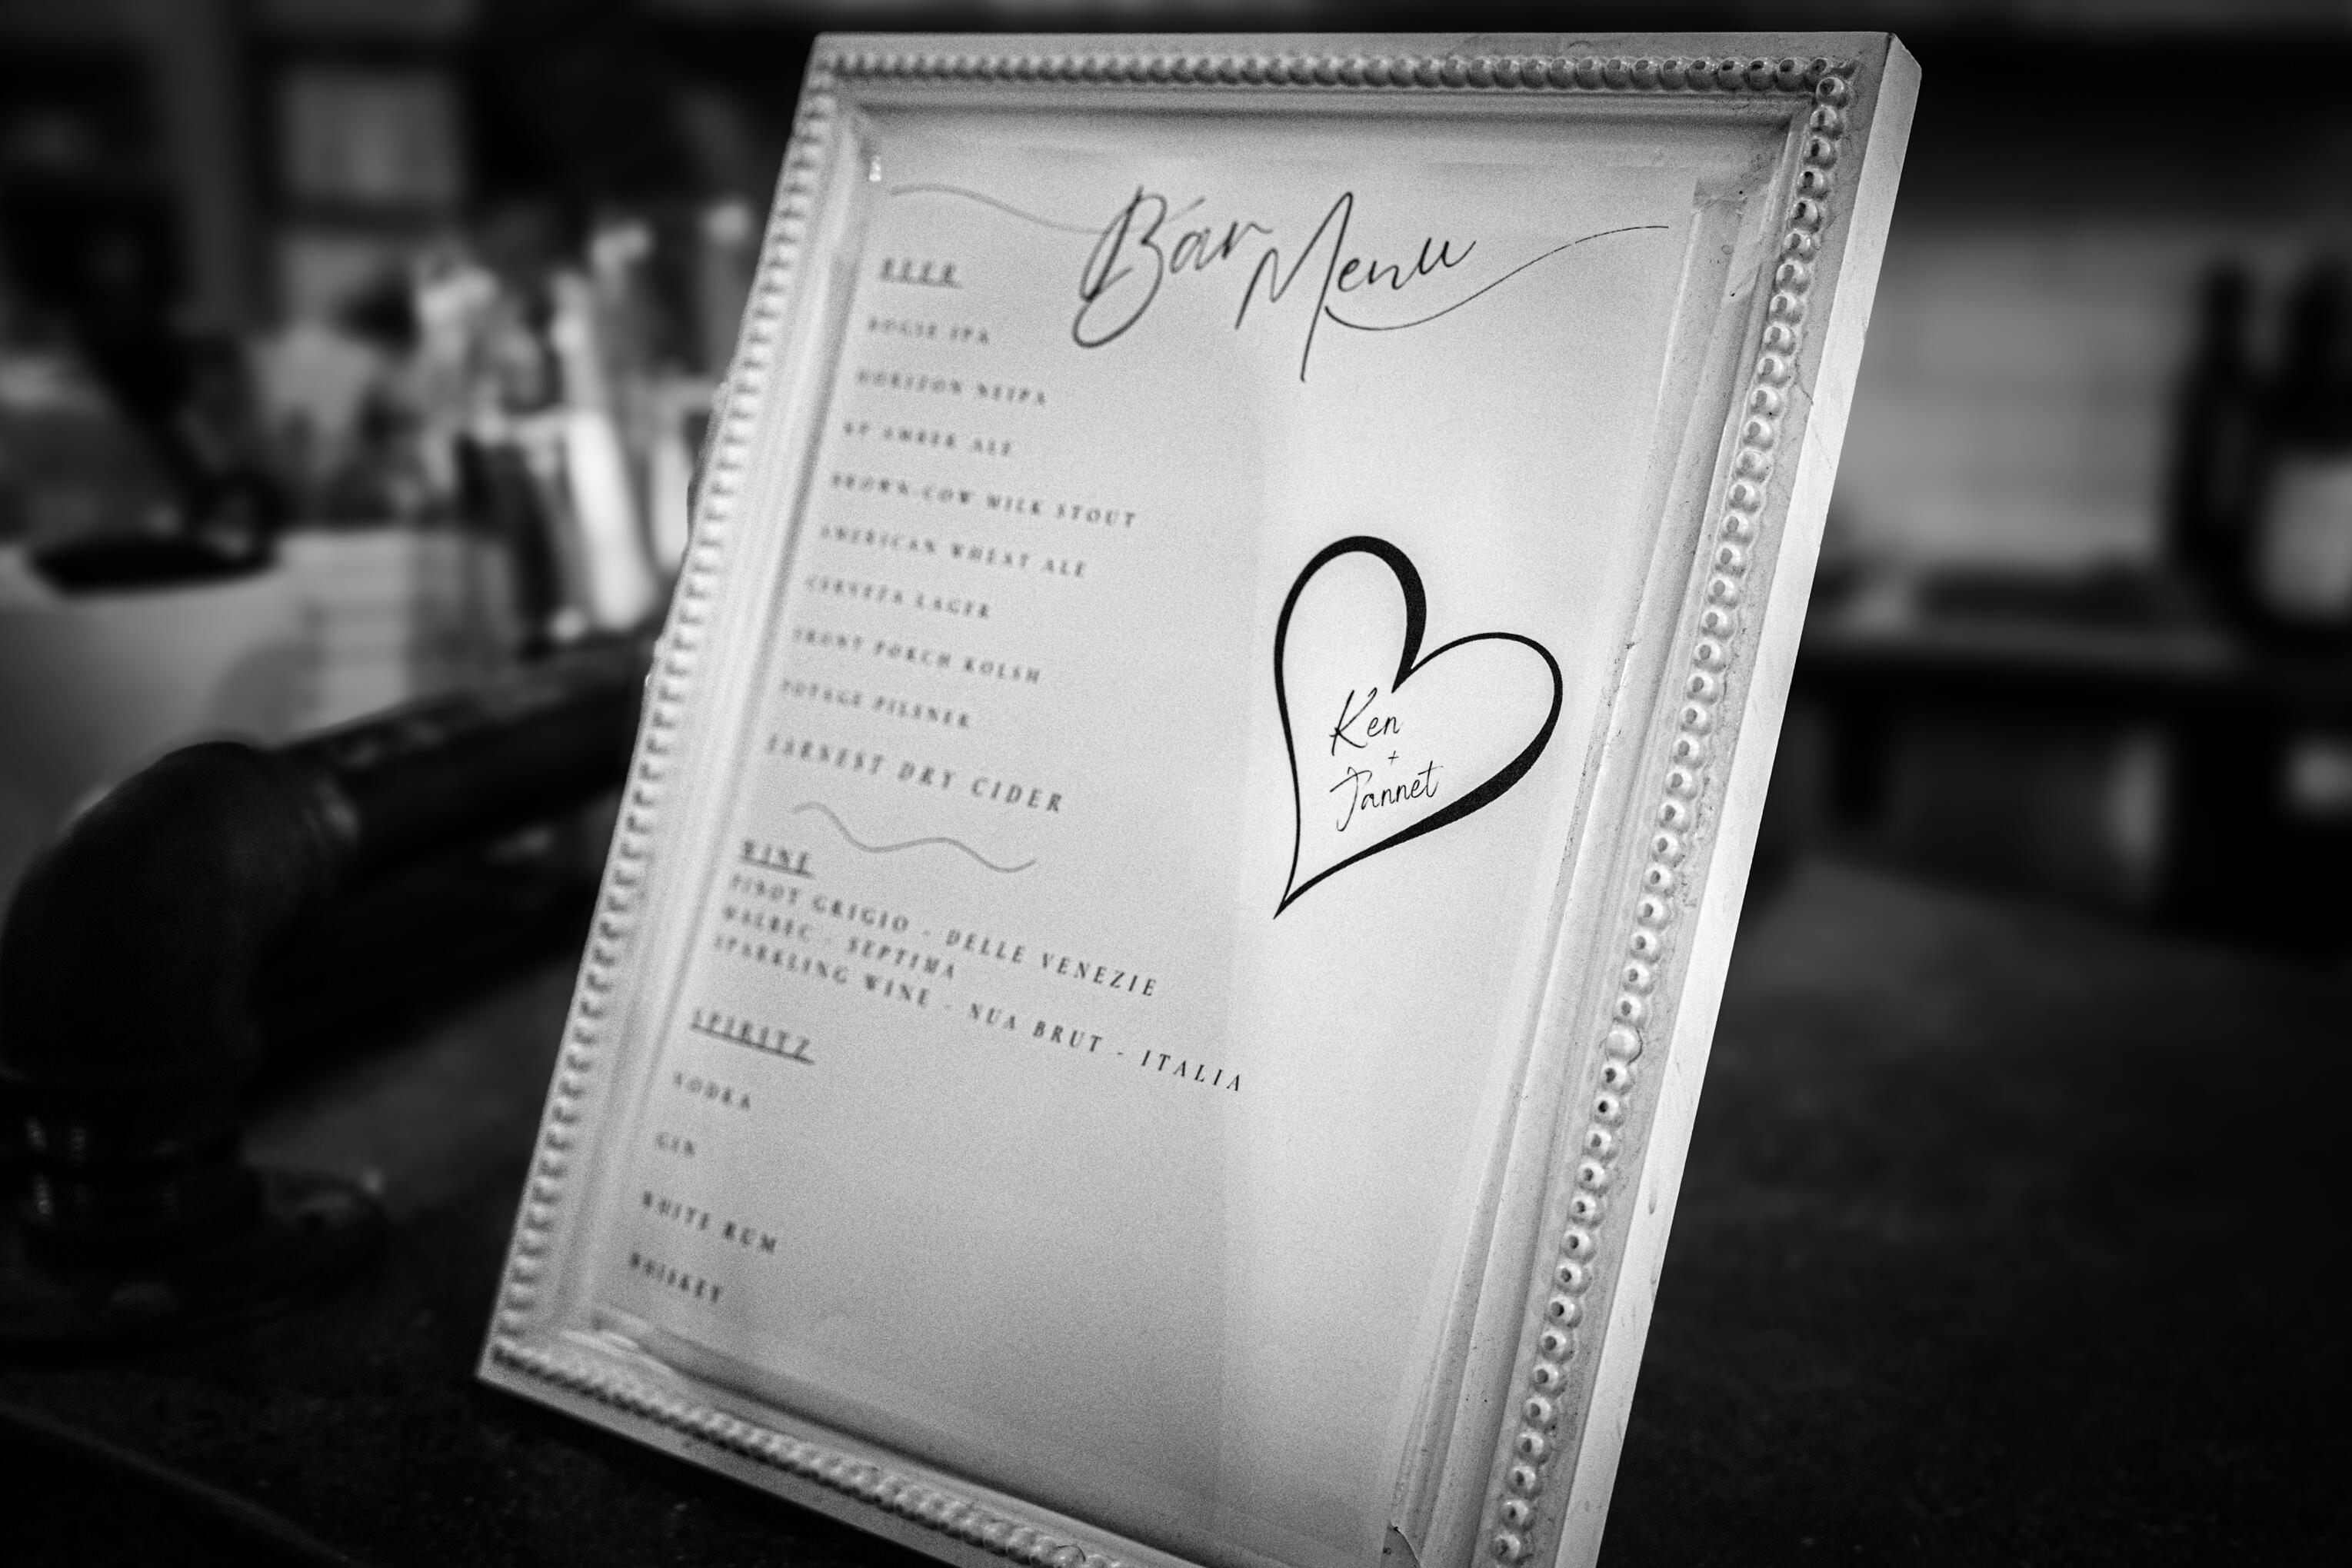 Bar Menu
BEER
BOGIE IPA
HORIZON NEIPA
AMBER ALE
BROWN COW MILK STOUT
AMERICAN WHEAT ALE
CERVEZA LAGER
FRONT PORCH KOLSH
POTAGE PILSNER
EARNEST DRY CIDER
Ken
+
Jannet
WINE
PINOT GRIGIO - DELLE VENEZIE
MALBEC - SEPTIMA
SPARKLING WINE - NUA BRUT - ITALIA
SPIRITZ
VODKA
GIN
WHITE RUM
WHISKEY